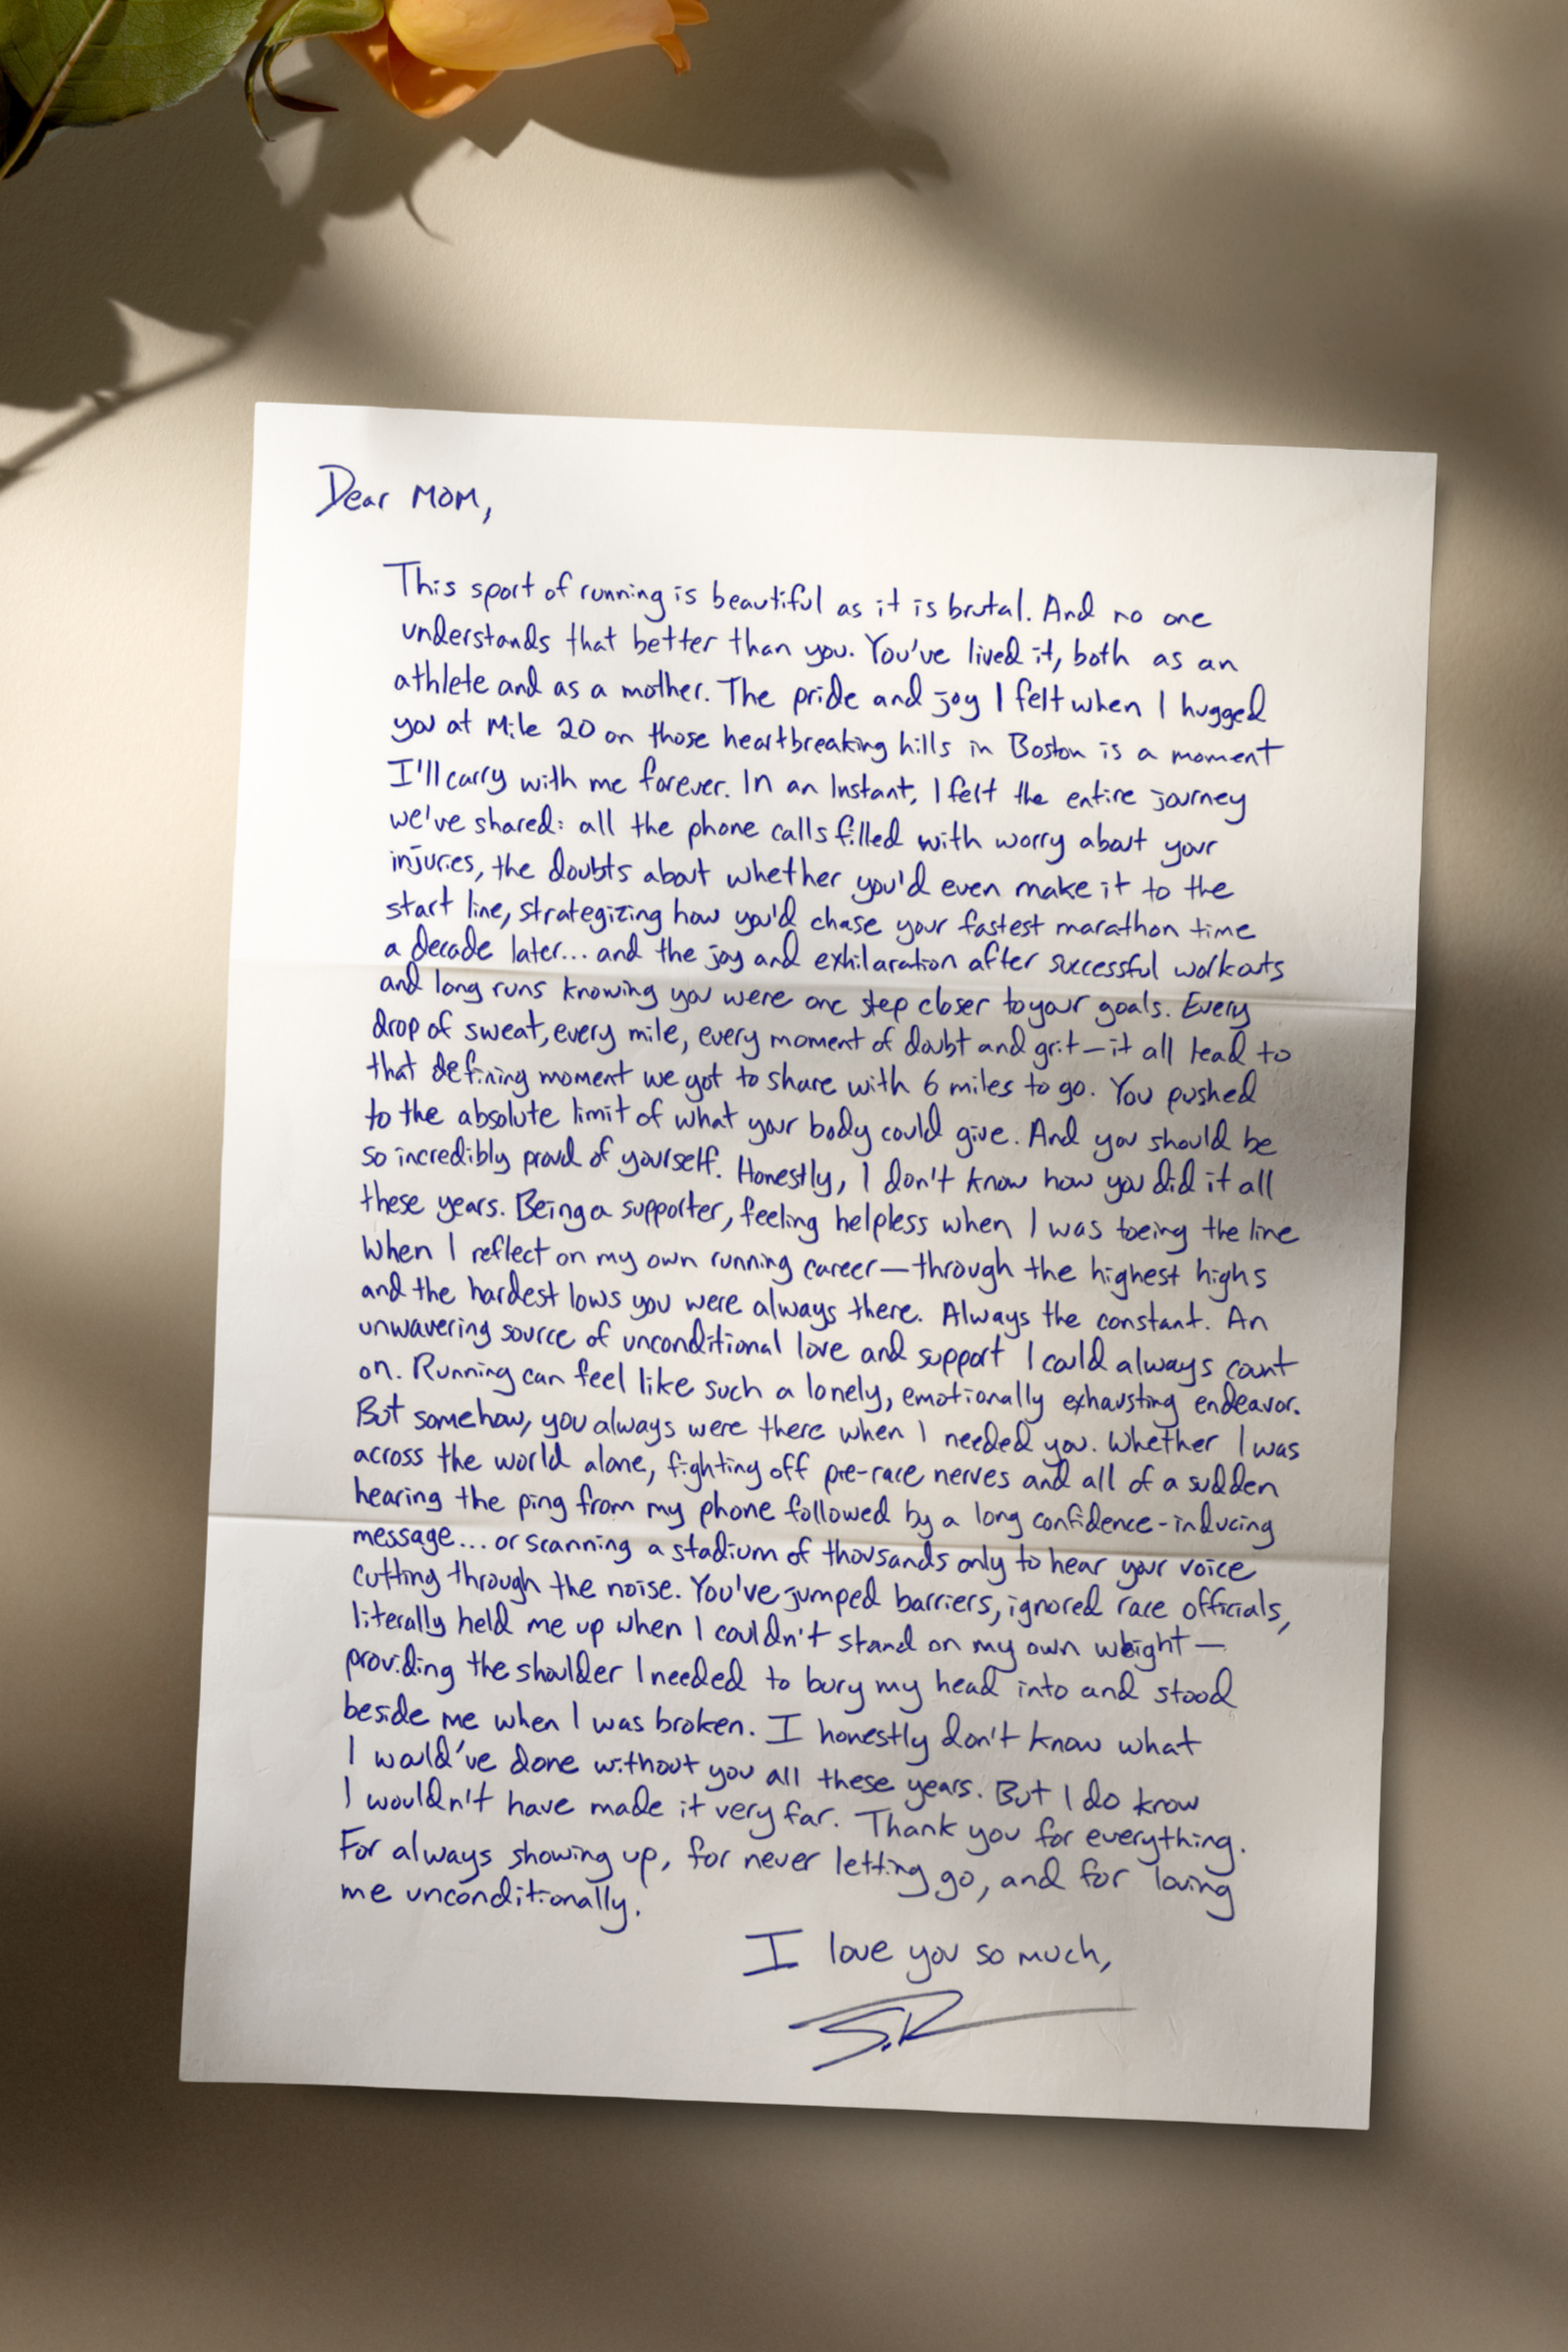 Dear MOM,
This sport of running is beautiful as it is brutal. And no one
understands that better than you. You've lived it, both as an
athlete and as a mother. The pride and joy I felt when I hugged
you at Mile 20 on those heartbreaking hills in Boston is a moment
I'll carry with me forever. In an Instant, I felt the entire journey
we've shared: all the phone calls filled with worry about your
injuries, the doubts about whether you'd even make it to the
start line, strategizing how you'd chase your fastest marathon time
a decade later... and the joy and exhilaration after successful workouts
and long runs knowing you were one step closer to your goals. Every
drop of sweat, every mile, every moment of doubt and grit—it all lead to
that defining moment we got to share with 6 miles to go. You pushed
to the absolute limit of what your body could give. And you should be
so incredibly proud of yourself. Honestly, I don't know how you did it all
these years. Being a supporter, feeling helpless when I was toeing the line
When I reflect on my own running career—through the highest highs
and the hardest lows you were always there. Always the constant. An
unwavering source of unconditional love and support I could always count
on. Running can feel like such a lonely, emotionally exhausting endeavor.
But somehow, you always were there when I needed you. Whether I was
across the world alone, fighting off pre-race nerves and all of a sudden
hearing the ping from my phone followed by a long confidence-inducing
message... or scanning a stadium of thousands only to hear your voice
cutting through the noise. You've jumped barriers, ignored race officials,
literally held me up when I couldn't stand on my own weight—
providing the shoulder I needed to bury my head into and stood
beside me when I was broken. I honestly don't know what
I would've done without you all these years. But I do know
I wouldn't have made it very far. Thank you for everything.
For always showing up, for never letting go, and for loving
me unconditionally.
I love you so much,